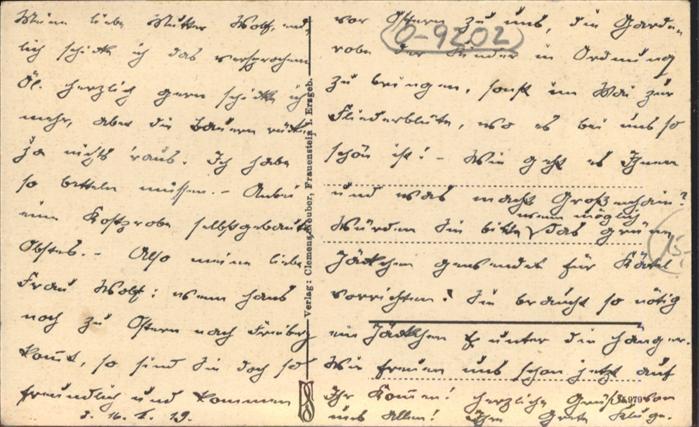 Meine liebe Mutter Wolf, end-
lich schicke ich das versprochene
Öl. Herzlich gern schickte ich
mehr, aber die Bauern rücken
ja nichts 'raus. Ich habe
so betteln müssen. - Anbei
eine Kostprobe selbstgebauten
Obstes. - Also meine liebe
Frau Wolf: wenn Hans
noch zu Ostern nach Freiberg
kommt, so sind Sie doch so
freundlich und kommen
19.
Verlag: Clemens Reuter, Frauenstein i. Erzgeb.
vor Ostern zu uns, die Garde-
robe der Kinder in Ordnung
zu bringen, sonst im Mai zur
Fliederblüte, wo es bei uns so
schön ist! - Wie geht es Ihnen
und was macht Großenhain?
wenn möglich
Würden Sie bitte das grüne
Jäckchen gewendet für Kätel
vorrichten! Sie braucht so nötig
ein Jäckchen unter die Hänger.
Wir freuen uns schon jetzt auf
Ihr Kommen! Herzliche Grüße von
uns allen! Ihre Grete Kluge.
0-9202